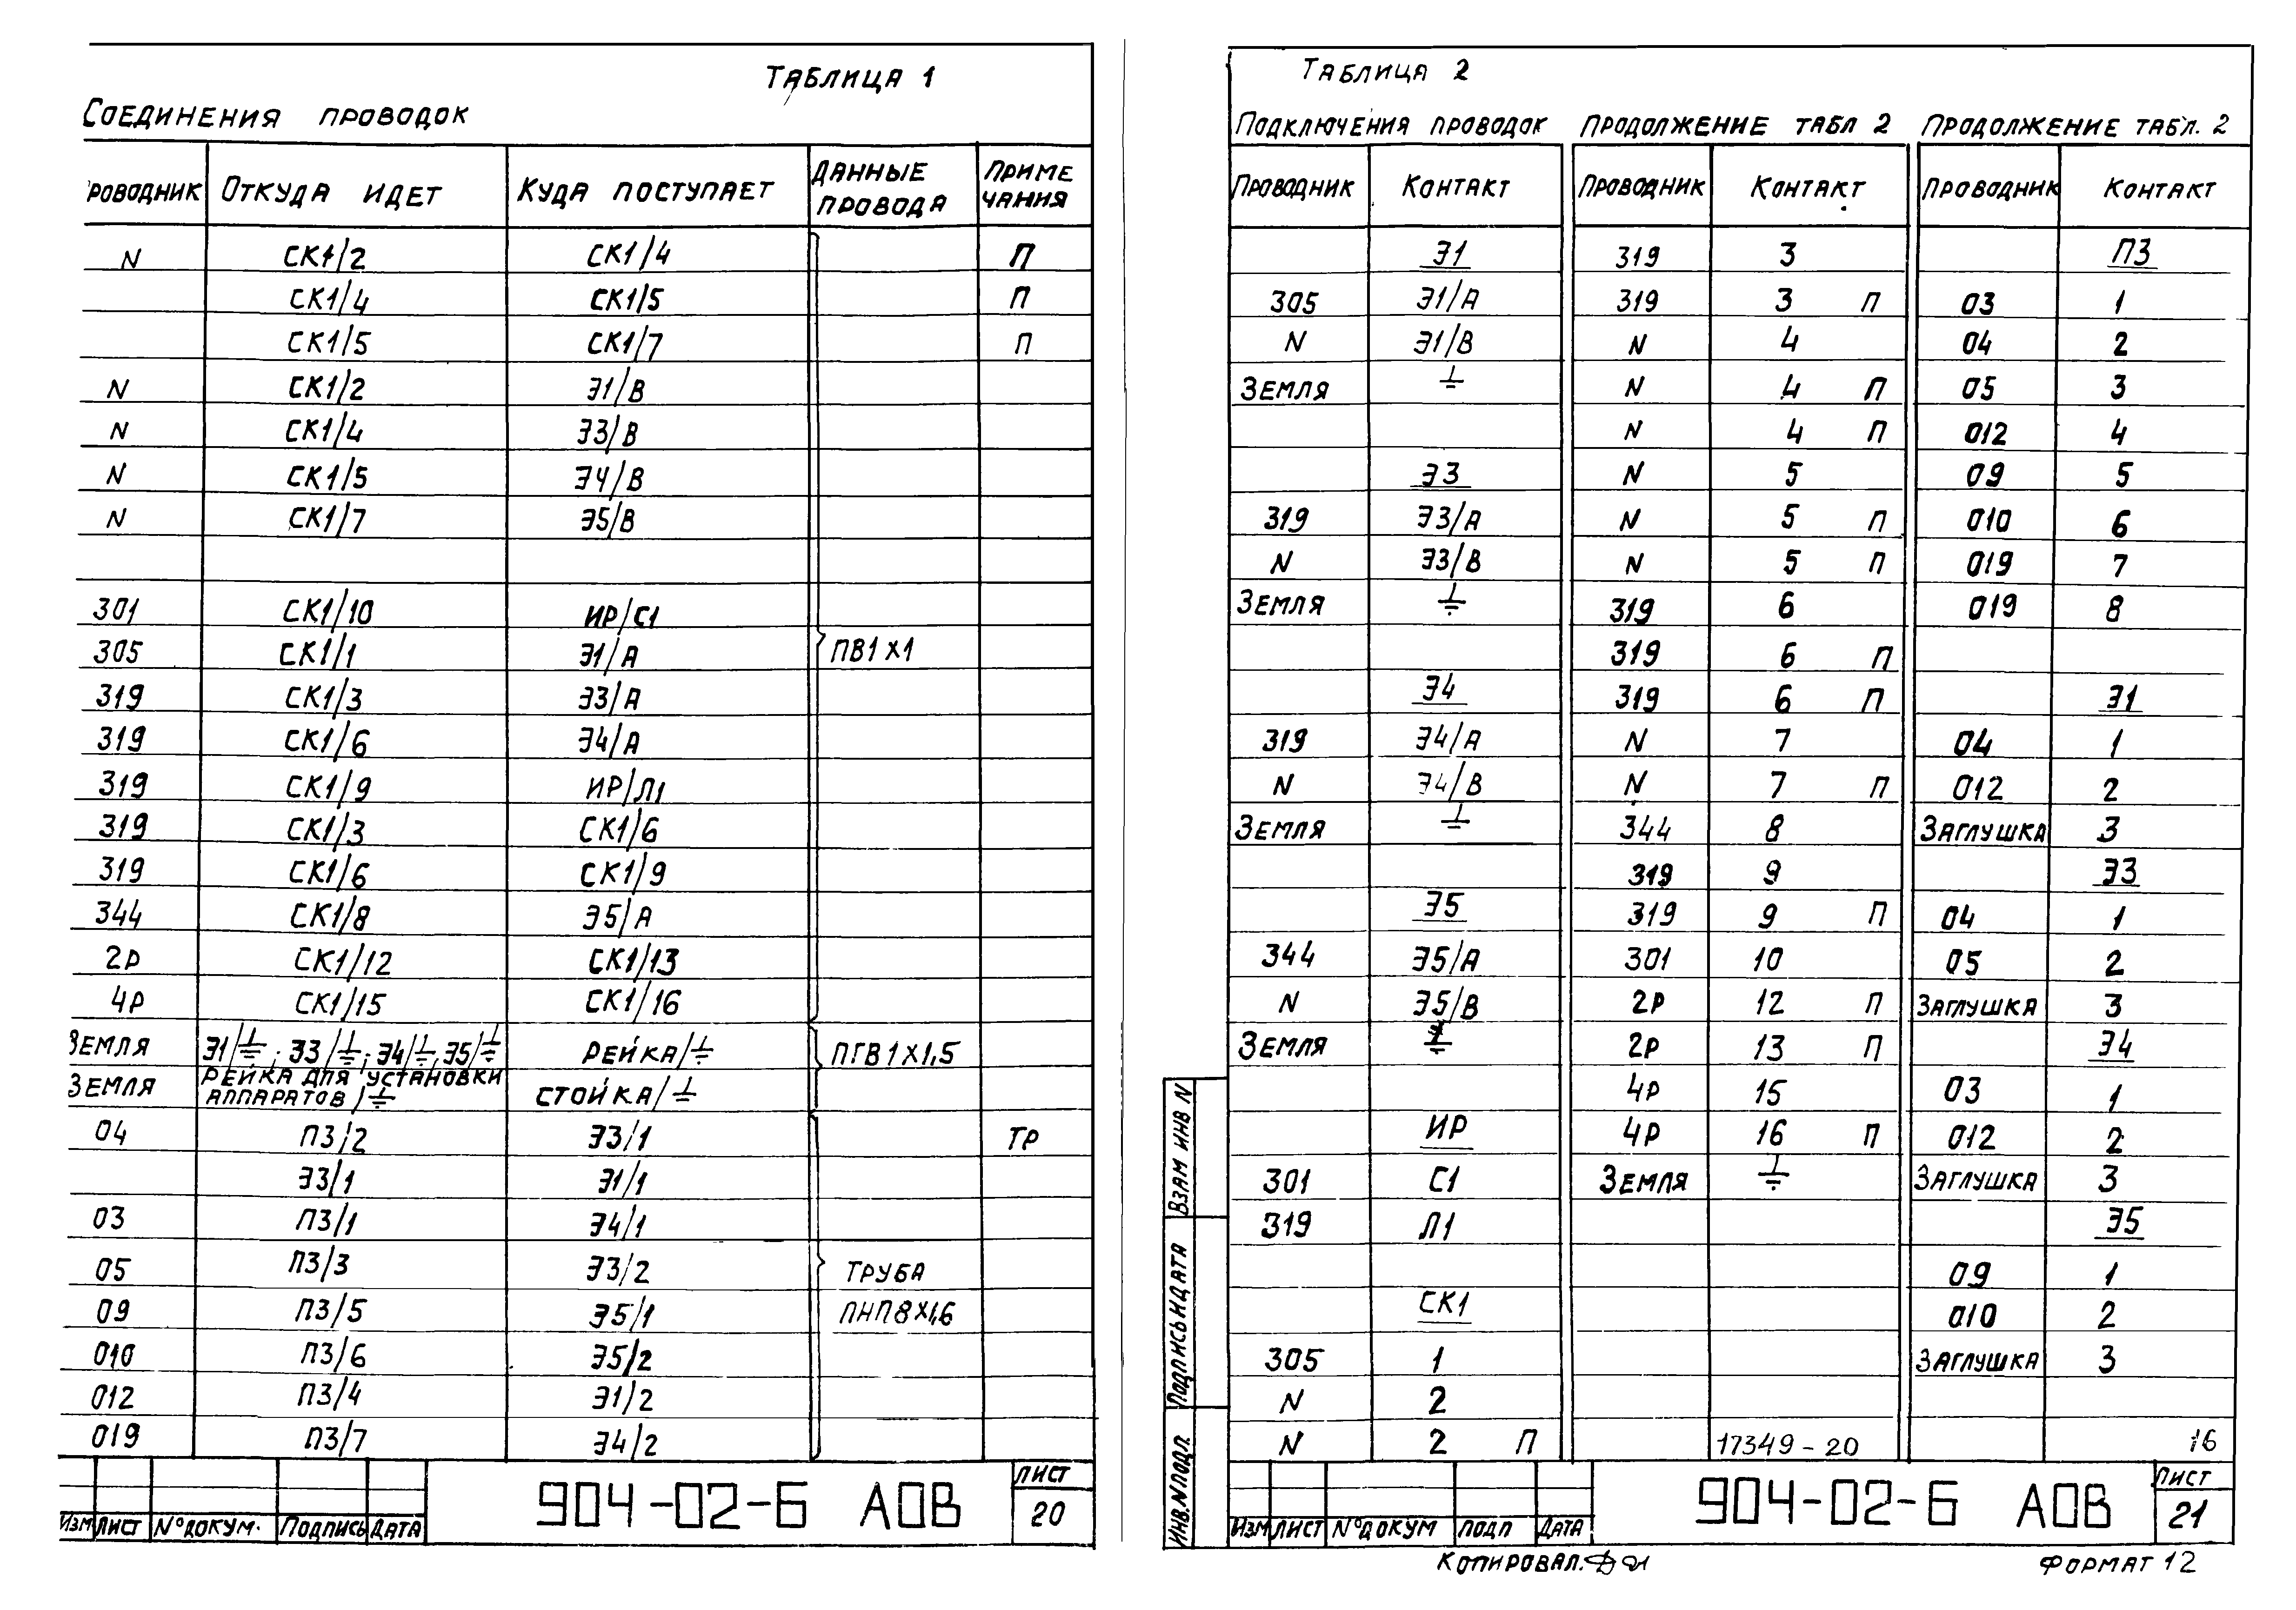 Таблица 1
Соединения проводок
роводник Откуда идет Куда поступает Данные провода Приме чания
N СК1/2 СК1/4 П
СК1/4 СК1/5 П
СК1/5 СК1/7 П
N СК1/2 Э1/В
N СК1/4 Э3/В
N СК1/5 Э4/В
N СК1/7 Э5/В
301 СК1/10 ИР/С1
305 СК1/1 Э1/А ПВ1х1
319 СК1/3 Э3/А
319 СК1/6 Э4/А
319 СК1/9 ИР/Л1
319 СК1/3 СК1/6
319 СК1/6 СК1/9
344 СК1/8 Э5/А
2Р СК1/12 СК1/13
4Р СК1/15 СК1/16
Земля Э1/⏚; Э3/⏚; Э4/⏚, Э5/⏚ Рейка/⏚ ПГВ1х1,5
Земля Рейка для установки аппаратов/⏚ Стойка/⏚
04 П3/2 Э3/1 ТР
Э3/1 Э1/1
03 П3/1 Э4/1
05 П3/3 Э3/2 Труба
09 П3/5 Э5/1 ПНП8х1,6
010 П3/6 Э5/2
012 П3/4 Э1/2
019 П3/7 Э4/2
Изм Лист № докум. Подпись Дата
904-02-6 АОВ
Лист
20
Таблица 2
Подключения проводок
Проводник Контакт
Э1
305 Э1/А
N Э1/В
Земля ⏚
Э3
319 Э3/А
N Э3/В
Земля ⏚
Э4
319 Э4/А
N Э4/В
Земля ⏚
Э5
344 Э5/А
N Э5/В
Земля ⏚
ИР
301 С1
319 Л1
СК1
305 1
N 2
N 2 П
Продолжение табл 2
Проводник Контакт
319 3
319 3 П
N 4
N 4 П
N 4 П
N 5
N 5 П
N 5 П
319 6
319 6 П
319 6 П
N 7
N 7 П
344 8
319 9
319 9 П
301 10
2Р 12 П
2Р 13 П
4Р 15
4Р 16 П
Земля ⏚
17349-20
Продолжение табл. 2
Проводник Контакт
П3
03 1
04 2
05 3
012 4
09 5
010 6
019 7
019 8
Э1
04 1
012 2
Заглушка 3
Э3
04 1
05 2
Заглушка 3
Э4
03 1
012 2
Заглушка 3
Э5
09 1
010 2
Заглушка 3
16
Взам инв N
Подпись и дата
Инв. N подл.
Изм Лист № докум Подп Дата
904-02-6 АОВ
Лист
21
Копировал.
Формат 12